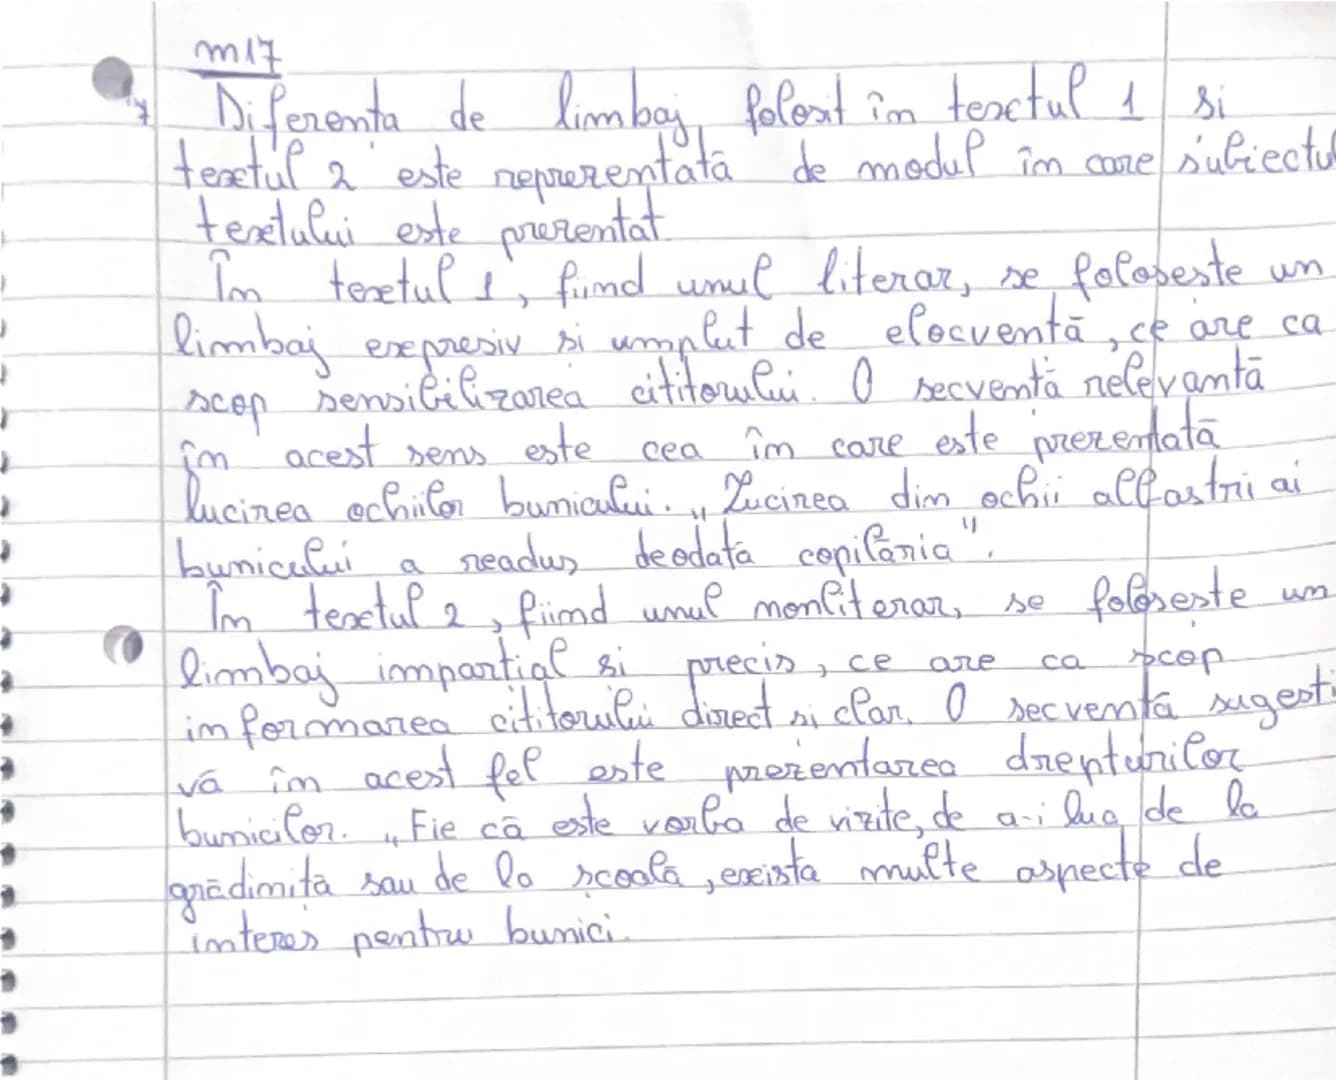 m17
Diferenta de limbaj folosit în textul 1 si
textul 2 este reprezentată de modul în care subiectul
textului este prezentat
În textul 1, fiind unul literar, se foloseste un
limbaj expresiv si umplut de elocventă, ce are ca
scop sensibilizarea cititorului. O secventă relevantă
în acest sens este cea în care este prezentată
lucirea ochilor bunicului. „Lucirea din ochii albastri ai
bunicului a readus deodată copilăria".
În textul 2, fiind unul nonliterar, se foloseste un
limbaj impartial si precis, ce are ca scop
informarea cititorului direct si clar. O secventă sugesti
vă în acest fel este prezentarea drepturilor
bunicilor. „Fie că este vorba de vizite, de a-i lua de la
grădinită sau de la scoală, exista multe aspecte de
interes pentru bunici.